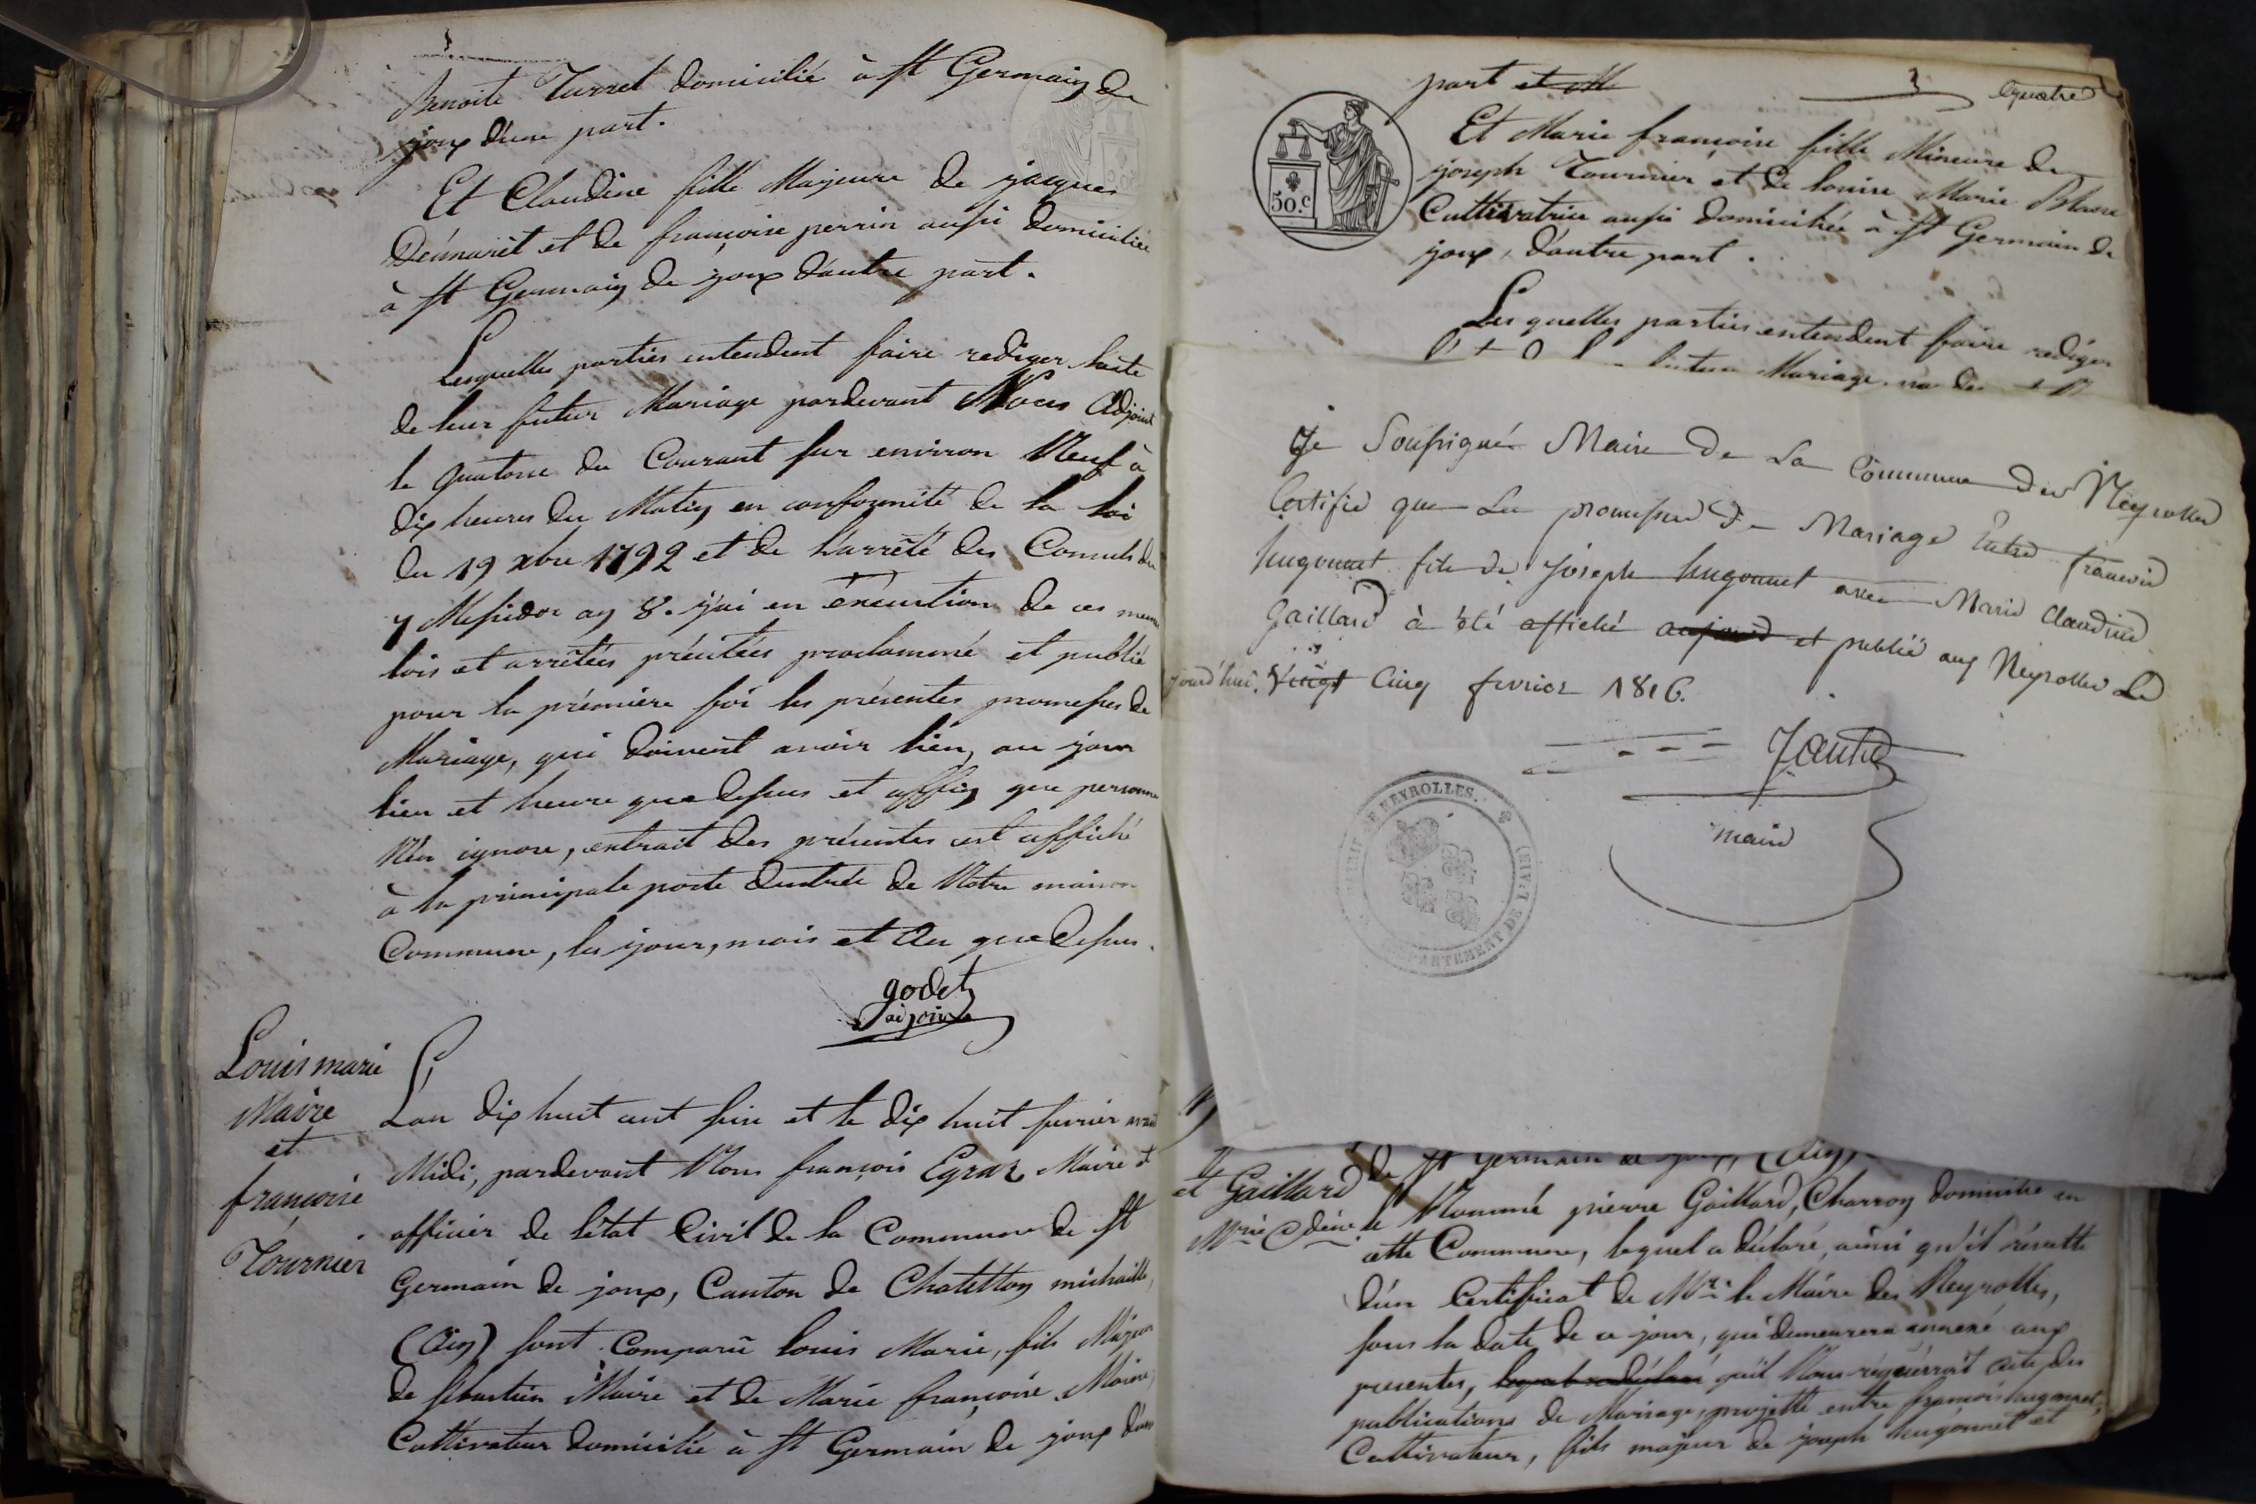 Benoite Turret domicilié à st Germain de
joux d'une part.
Et Claudine fille Majeure de jacques
Démaret et de françoise perrin aussi domiciliée
à st Germain de joux d'autre part.
Lesquelles parties entendent faire rediger l'acte
de leur futur Mariage pardevant Nous Adjoint
le quatorze du Courant sur environ Neuf à
dix heures du Matin en conformité de la loi
du 19 xbre 1792 et de l'arrêté des Consuls du
7 Messidor an 8. j'ai en éxécution de ces memes
lois et arrêtées précitées proclammé et publié
pour la prémière foi les présentes promesses de
Mariage, qui doivent avoir lieu, au jour
lieu et heure que dessus et affin que personne
N'en ignore, extrait des présentes est affiché
à la principale porte d'entrée de Notre maison
Commune, les jour, mois et an que dessus.
godet
adjoint
Louis marie
Maire
et
françoise
Tournier
L'an dix huit cent seize et le dix huit fevrier avant
Midi, pardevant Nous françois Egraz Maire et
officier de l'état Civil de la Commune de st
Germain de joux, Canton de Chatillon michaille,
(Ain) sont Comparu louis Marie, fils Majeur
de sébastien Maire et de Marie françoise
Cultivateur domicilié à st Germain de joux d'une
quatre
part et
Et Marie françoise fille Mineure de
joseph Tournier et de louise Marie
Cultivatrice aussi domiciliée à st Germain de
joux, d'autre part.
50.c
Les quelles parties entendent faire rediger
futur Mariage
Je Soussigné Maire de La Commune des Neyrolles
Certifie que Les promesses de Mariage Entre francois
hugonnet fils de Joseph hugonnet avec Marie Claudine
Gaillard à été affiché et publié aux Neyrolles Le
jourd'hui. Vingt Cinq fevrier 1816.
maire
MAIRIE DE NEYROLLES.
DÉPARTEMENT DE L'AIN
et Gaillard
Mrie Cdine
de st Germain de joux, (Ain)
le Nommé pierre Gaillard, Charron domicilié en
cette Commune, lequel a déclaré, ainsi qu'il résulte
d'un Certificat de Mr. le Maire des Neyrolles,
sous la date de ce jour, qui demeurera annexé aux
presentes, qu'il Nous requerrait acte des
publications de Mariage, projetté entre françois hugonnet,
Cultivateur, fils majeur de joseph hugonnet et